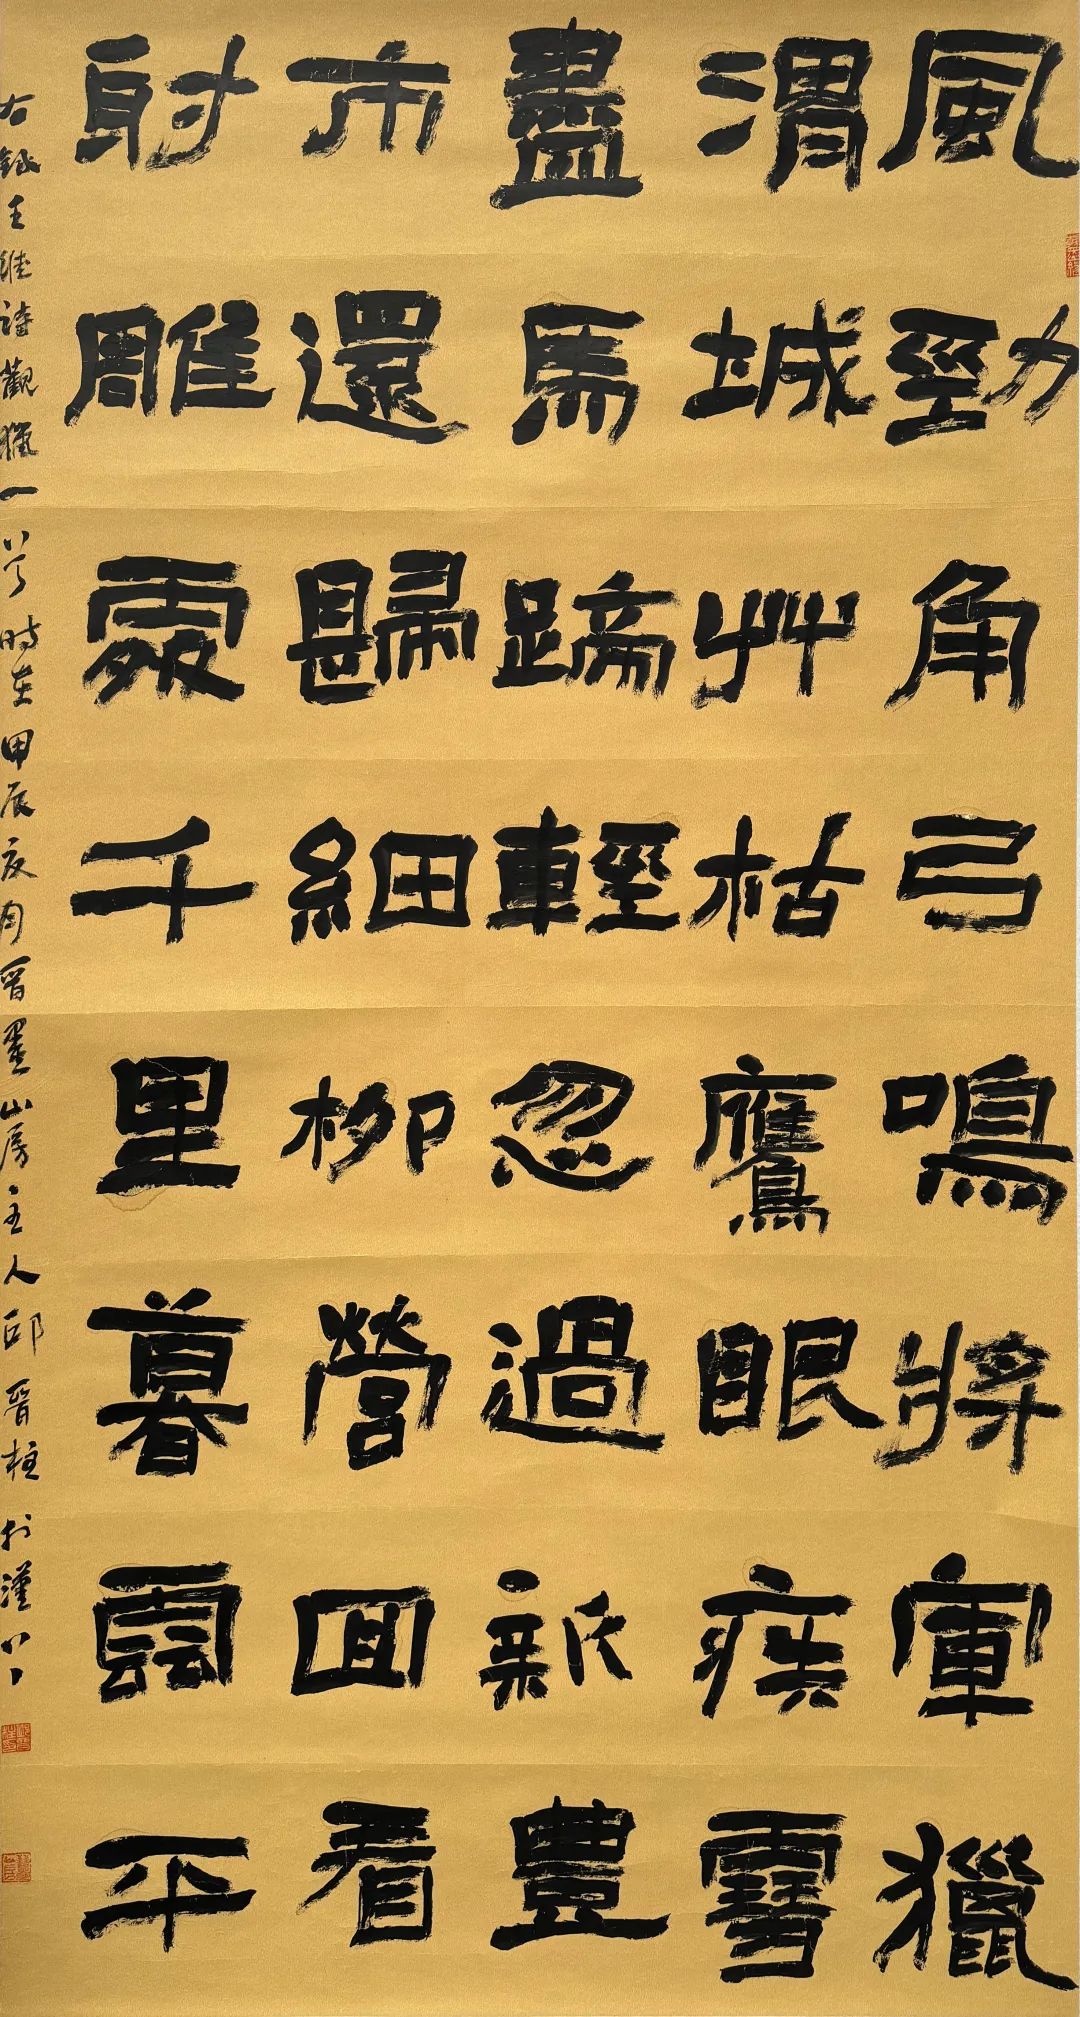 風勁角弓鳴將軍獵
渭城艸枯鷹眼疾雪
盡馬蹄輕忽過新豊
市還歸細柳營回看
射雕處千里暮雲平
右錄王維詩觀獵一首時在甲辰夏月晉墨山房主人邱晉柱於漢上